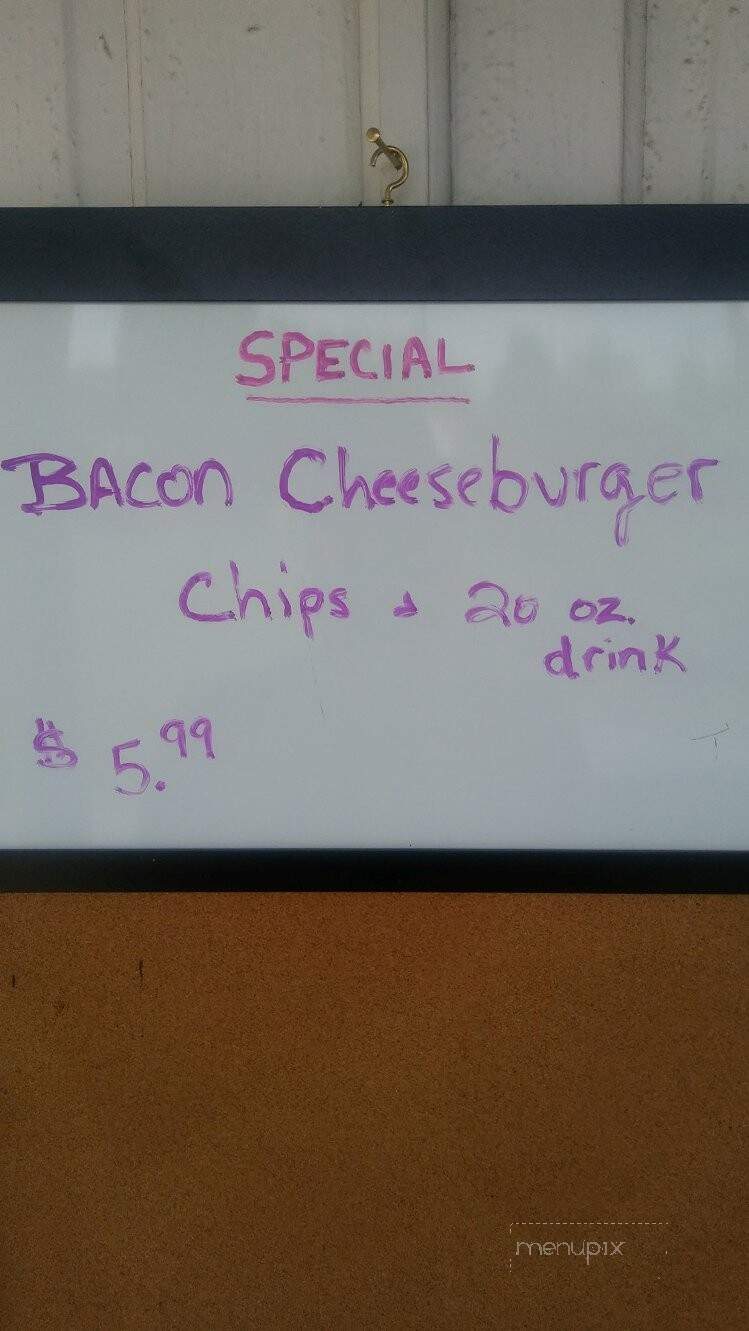 SPECIAL
BACON Cheeseburger
Chips & 20 oz.
drink
$ 5.99
menupix